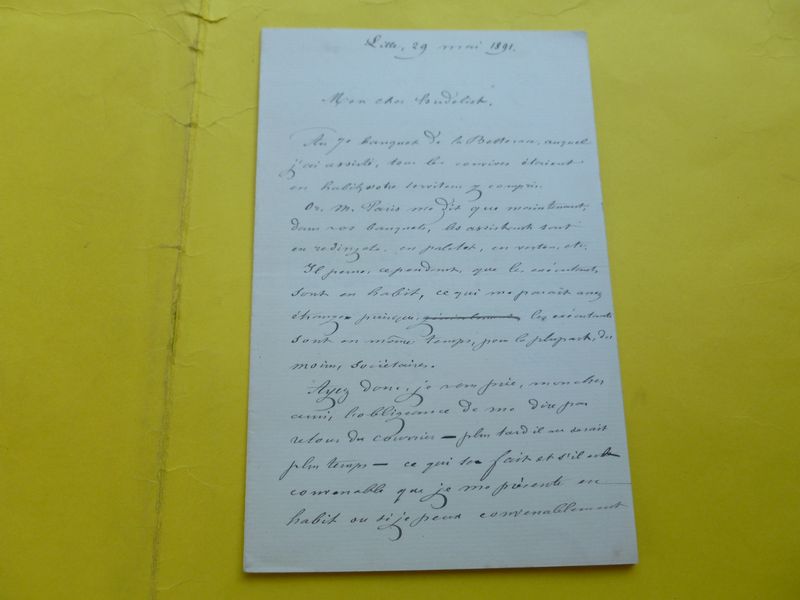 Lille, 29 mai 1891.
Mon cher
Au 7e banquet de la Betterave, auquel
j'ai assisté, tous les convives étaient
en habit, votre serviteur y compris.
Or, M. Paris me dit que maintenant,
dans vos banquets, les assistants sont
en redingote, en paletot, en veston, etc.
Il pense, cependant, que les exécutants
sont en habit, ce qui me paraît assez
étrange puisque, généralement, les exécutants
sont en même temps, pour la plupart, du
moins, sociétaires.
Ayez donc, je vous prie, mon cher
ami, l'obligeance de me dire par
retour du courrier — plus tard il ne serait
plus temps — ce qui se fait et s'il est
convenable que je me présente en
habit ou si je peux convenablement